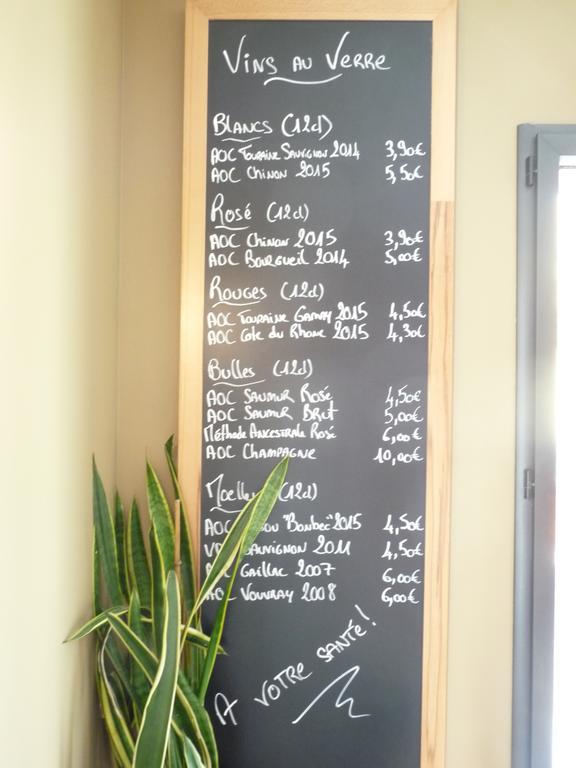 Vins au Verre
Blancs (12cl)
AOC Touraine Sauvignon 2014 3,90€
AOC Chinon 2015 5,50€
Rosé (12cl)
AOC Chinon 2015 3,90€
AOC Bourgueil 2014 5,00€
Rouges (12cl)
AOC Touraine Gamay 2015 4,50€
AOC Cote du Rhone 2015 4,30€
Bulles (12cl)
AOC Saumur Rosé 4,50€
AOC Saumur Brut 5,00€
Méthode Ancestrale Rosé 6,00€
AOC Champagne 10,00€
Moelle (12cl)
AOC "Bonbec" 2015 4,50€
Sauvignon 2011 4,50€
Gaillac 2007 6,00€
AOC Vouvray 2008 6,00€
A votre santé!